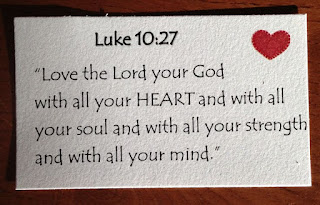 Luke 10:27
“Love the Lord your God
with all your HEART and with all
your soul and with all your strength
and with all your mind.”